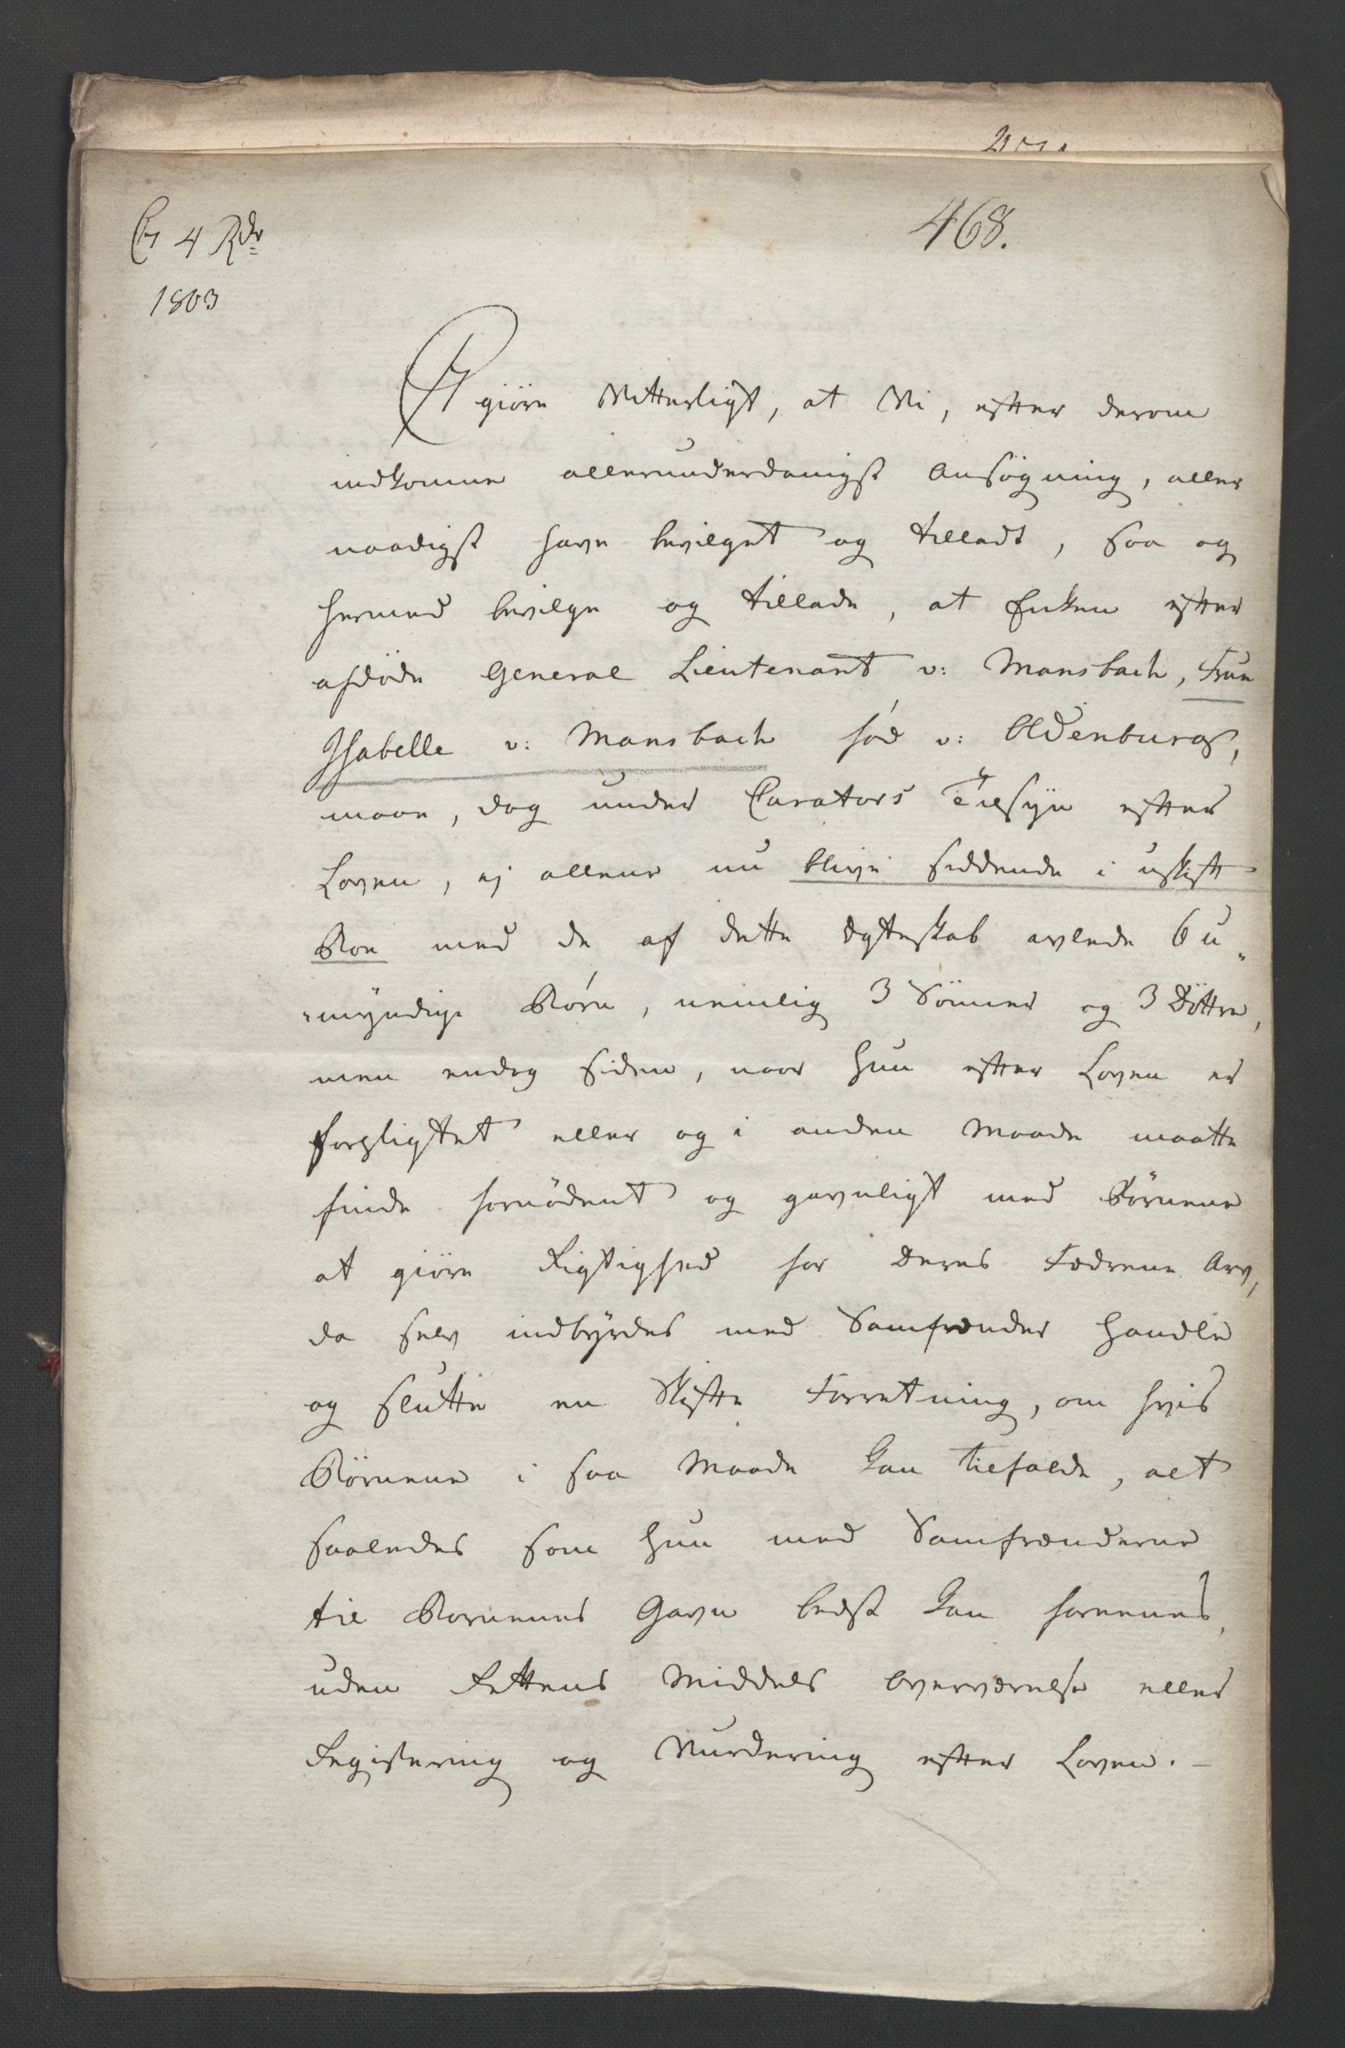 468.
C 7 4 Rdr
1803
C 7 giøre Vitterligt, at Vi, efter derom
indkomne allerunderdanigst Ansøgning, aller
naadigst have bevilget og tilladt, saa og
hermed bevilge og tillade, at Enken efter
afdøde General Lieutenant v: Mansbach, Frue
Isabelle v: Mansbach fød v: Oldenburg,
maae, dog under Curators Tilsyn efter
Loven, ej allene nu blive siddende i uskift
Boe med de af dette Ægteskab avlede 6 u„
„myndige Børn, nemlig 3 Sønner og 3 Døttre,
men endog siden, naar hun efter Loven er
forpligtet eller og i anden Maade maatte
finde fornødent og gavnligt med Børnene
at giøre Rigtighed for deres Fædrene Arv,
da selv indbyrdes med Samfrænder handle
og slutte en Skifte Forretning, om hvis
Børnene i saa Maade kan tilfalde, alt
saaledes som hun med Samfrænderne
til Børnenes Gavn bedst kan forenes,
uden Rettens Middels Overværelse eller
Registering og Vurdering efter Loven. –